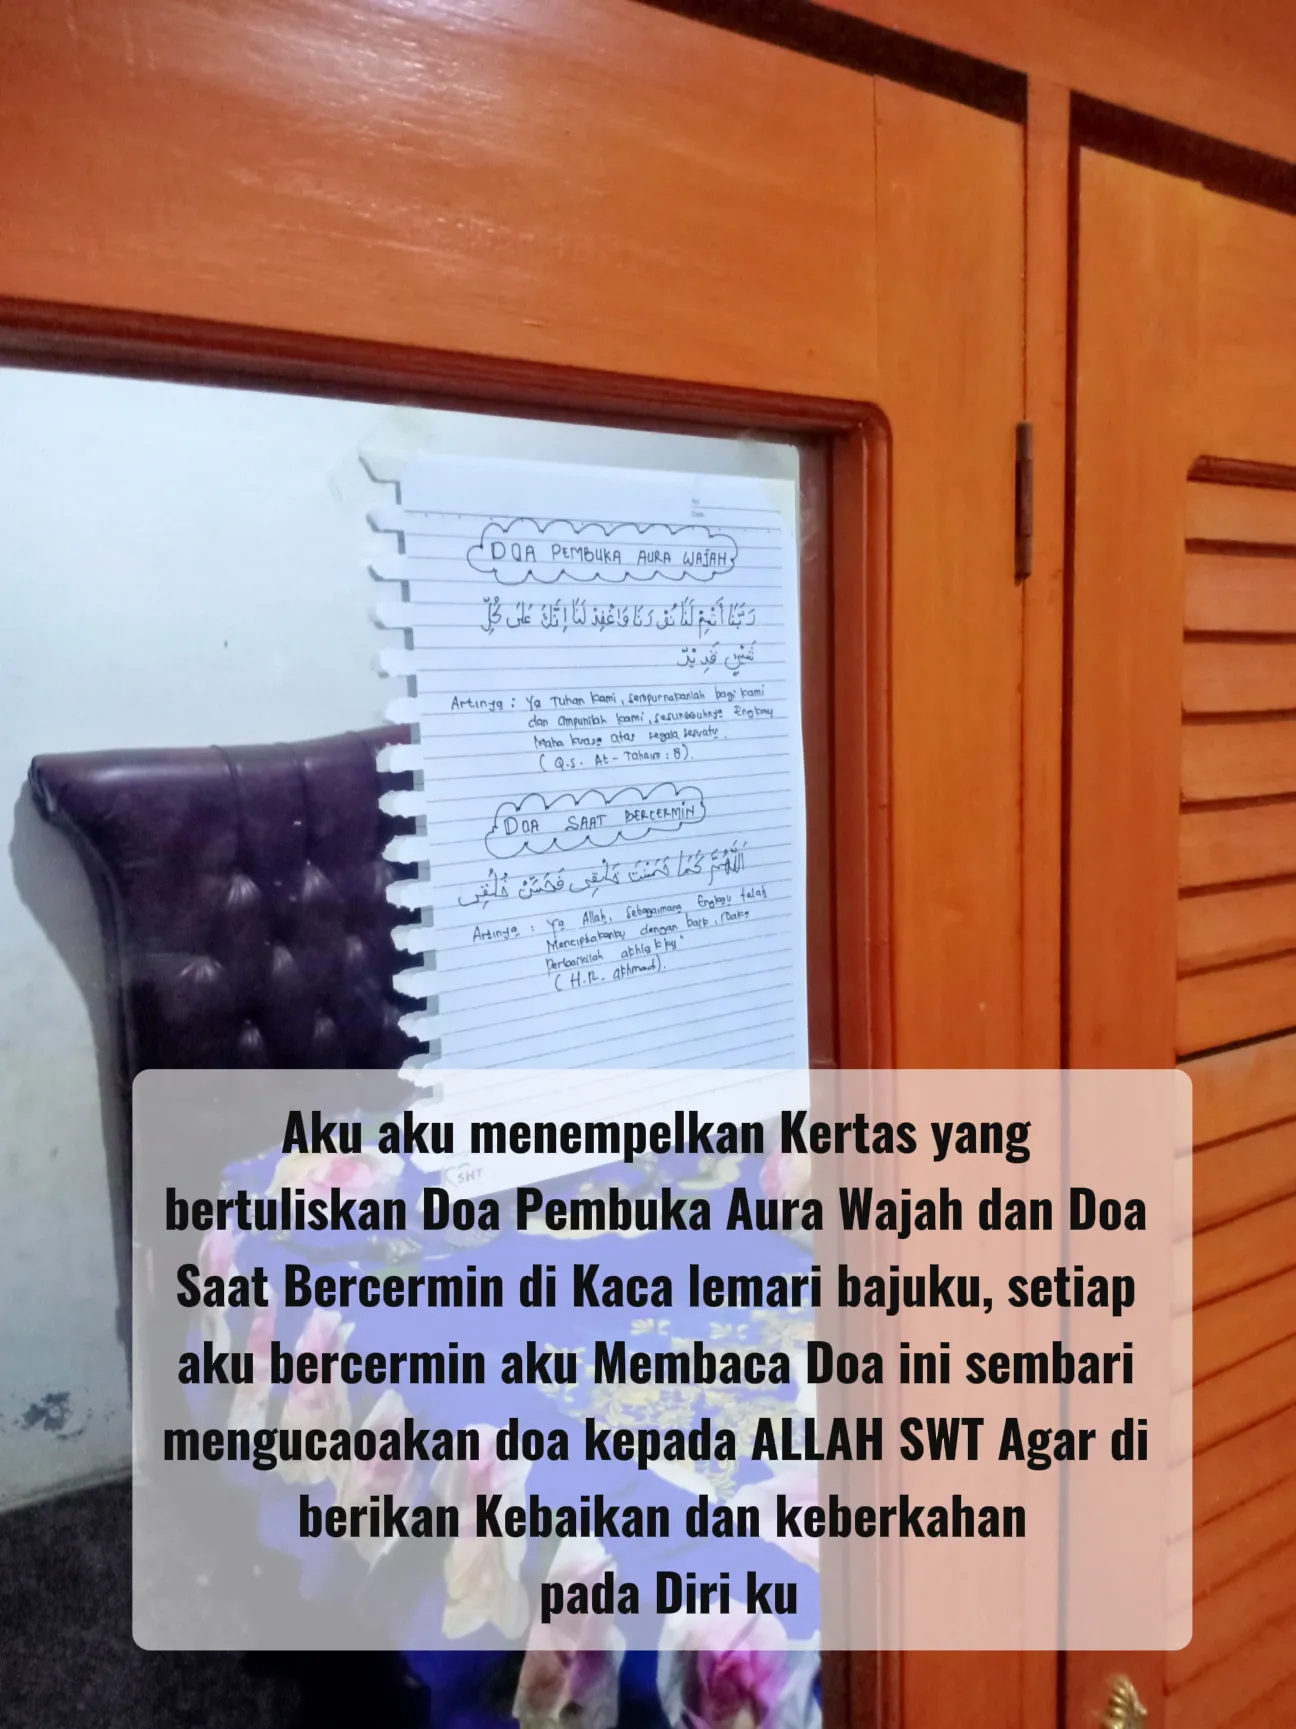 DOA PEMBUKA AURA WAJAH
رَبَّنَا أَتْمِمْ لَنَا نُوْرَنَا وَاغْفِرْ لَنَا إِنَّكَ عَلَى كُلِّ
شَيْءٍ قَدِيْرٌ
Artinya : Ya Tuhan kami, sempurnakanlah bagi kami
dan ampunilah kami, sesungguhnya Engkau
Maha kuasa atas segala sesuatu.
( Q.S. At - Tahrim : 8 ).
DOA SAAT BERCERMIN
اَللّٰهُمَّ كَمَا حَسَّنْتَ خَلْقِى فَحَسِّنْ خُلُقِى
Artinya : Ya Allah, Sebagaimana Engkau telah
Menciptakanku dengan baik, maka
Perbaikilah akhlakku"
( H.R. Ahmad ).
Aku aku menempelkan Kertas yang
bertuliskan Doa Pembuka Aura Wajah dan Doa
Saat Bercermin di Kaca lemari bajuku, setiap
aku bercermin aku Membaca Doa ini sembari
mengucaoakan doa kepada ALLAH SWT Agar di
berikan Kebaikan dan keberkahan
pada Diri ku